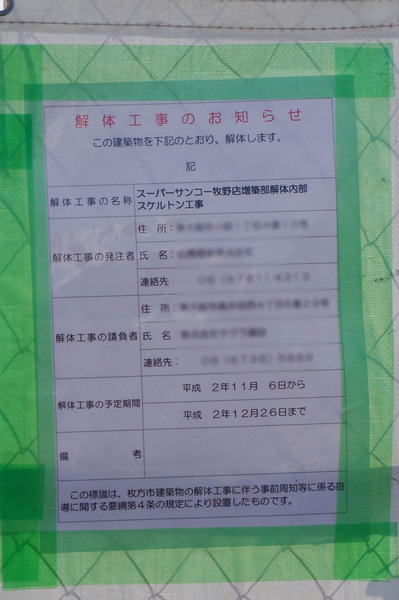 解体工事のお知らせ
この建築物を下記のとおり、解体します。
記
解体工事の名称 スーパーサンコー牧野店増築部解体内部
スケルトン工事
解体工事の発注者
住 所：
氏 名：
連絡先：
解体工事の請負者
住 所：
氏 名：
連絡先：
解体工事の予定期間
平成 2年11月 6日から
平成 2年12月26日まで
備 考
この標識は、枚方市建築物の解体工事に伴う事前周知等に係る指
導に関する要綱第４条の規定により設置したものです。